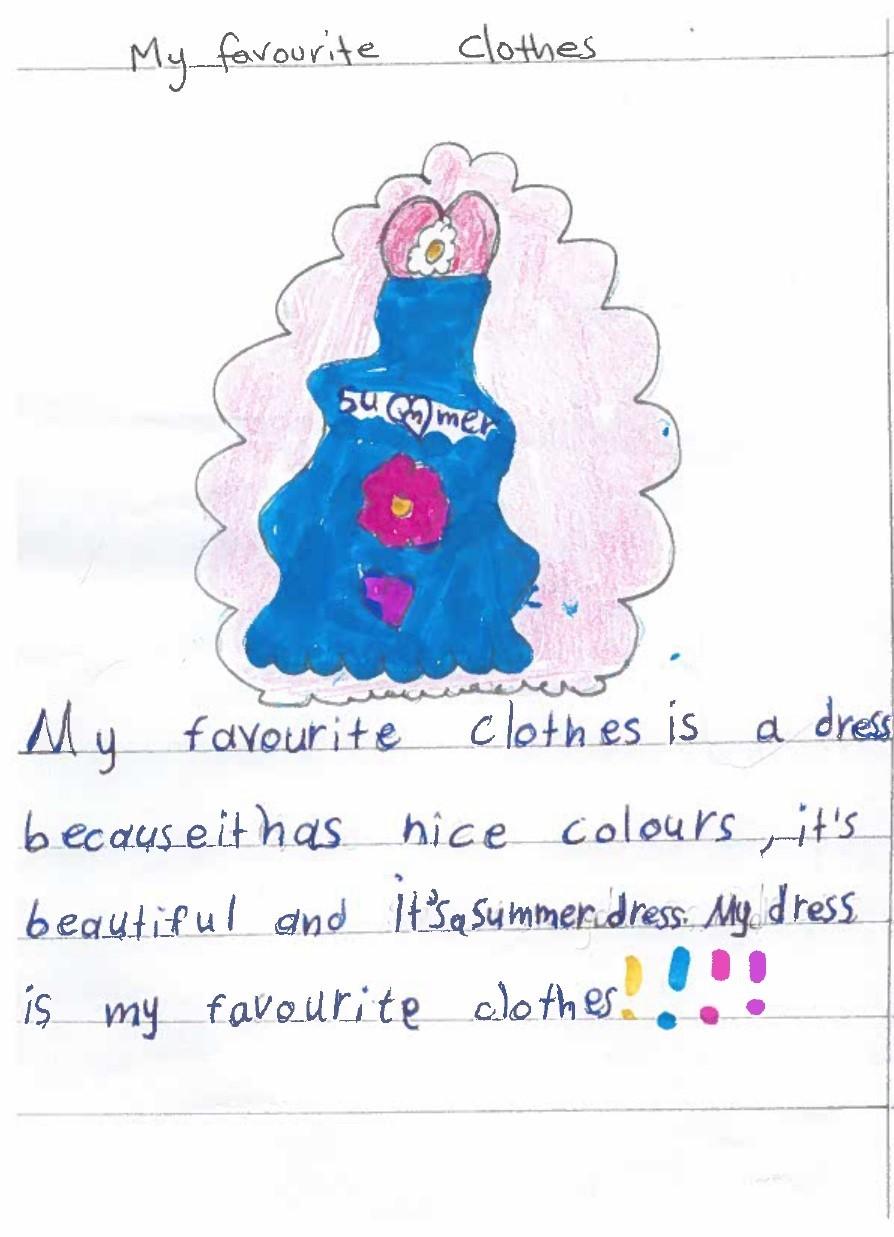 My favourite clothes
summer
My favourite clothes is a dress
because it has nice colours, it's
beautiful and it's a summer dress. My dress
is my favourite clothes!!!!